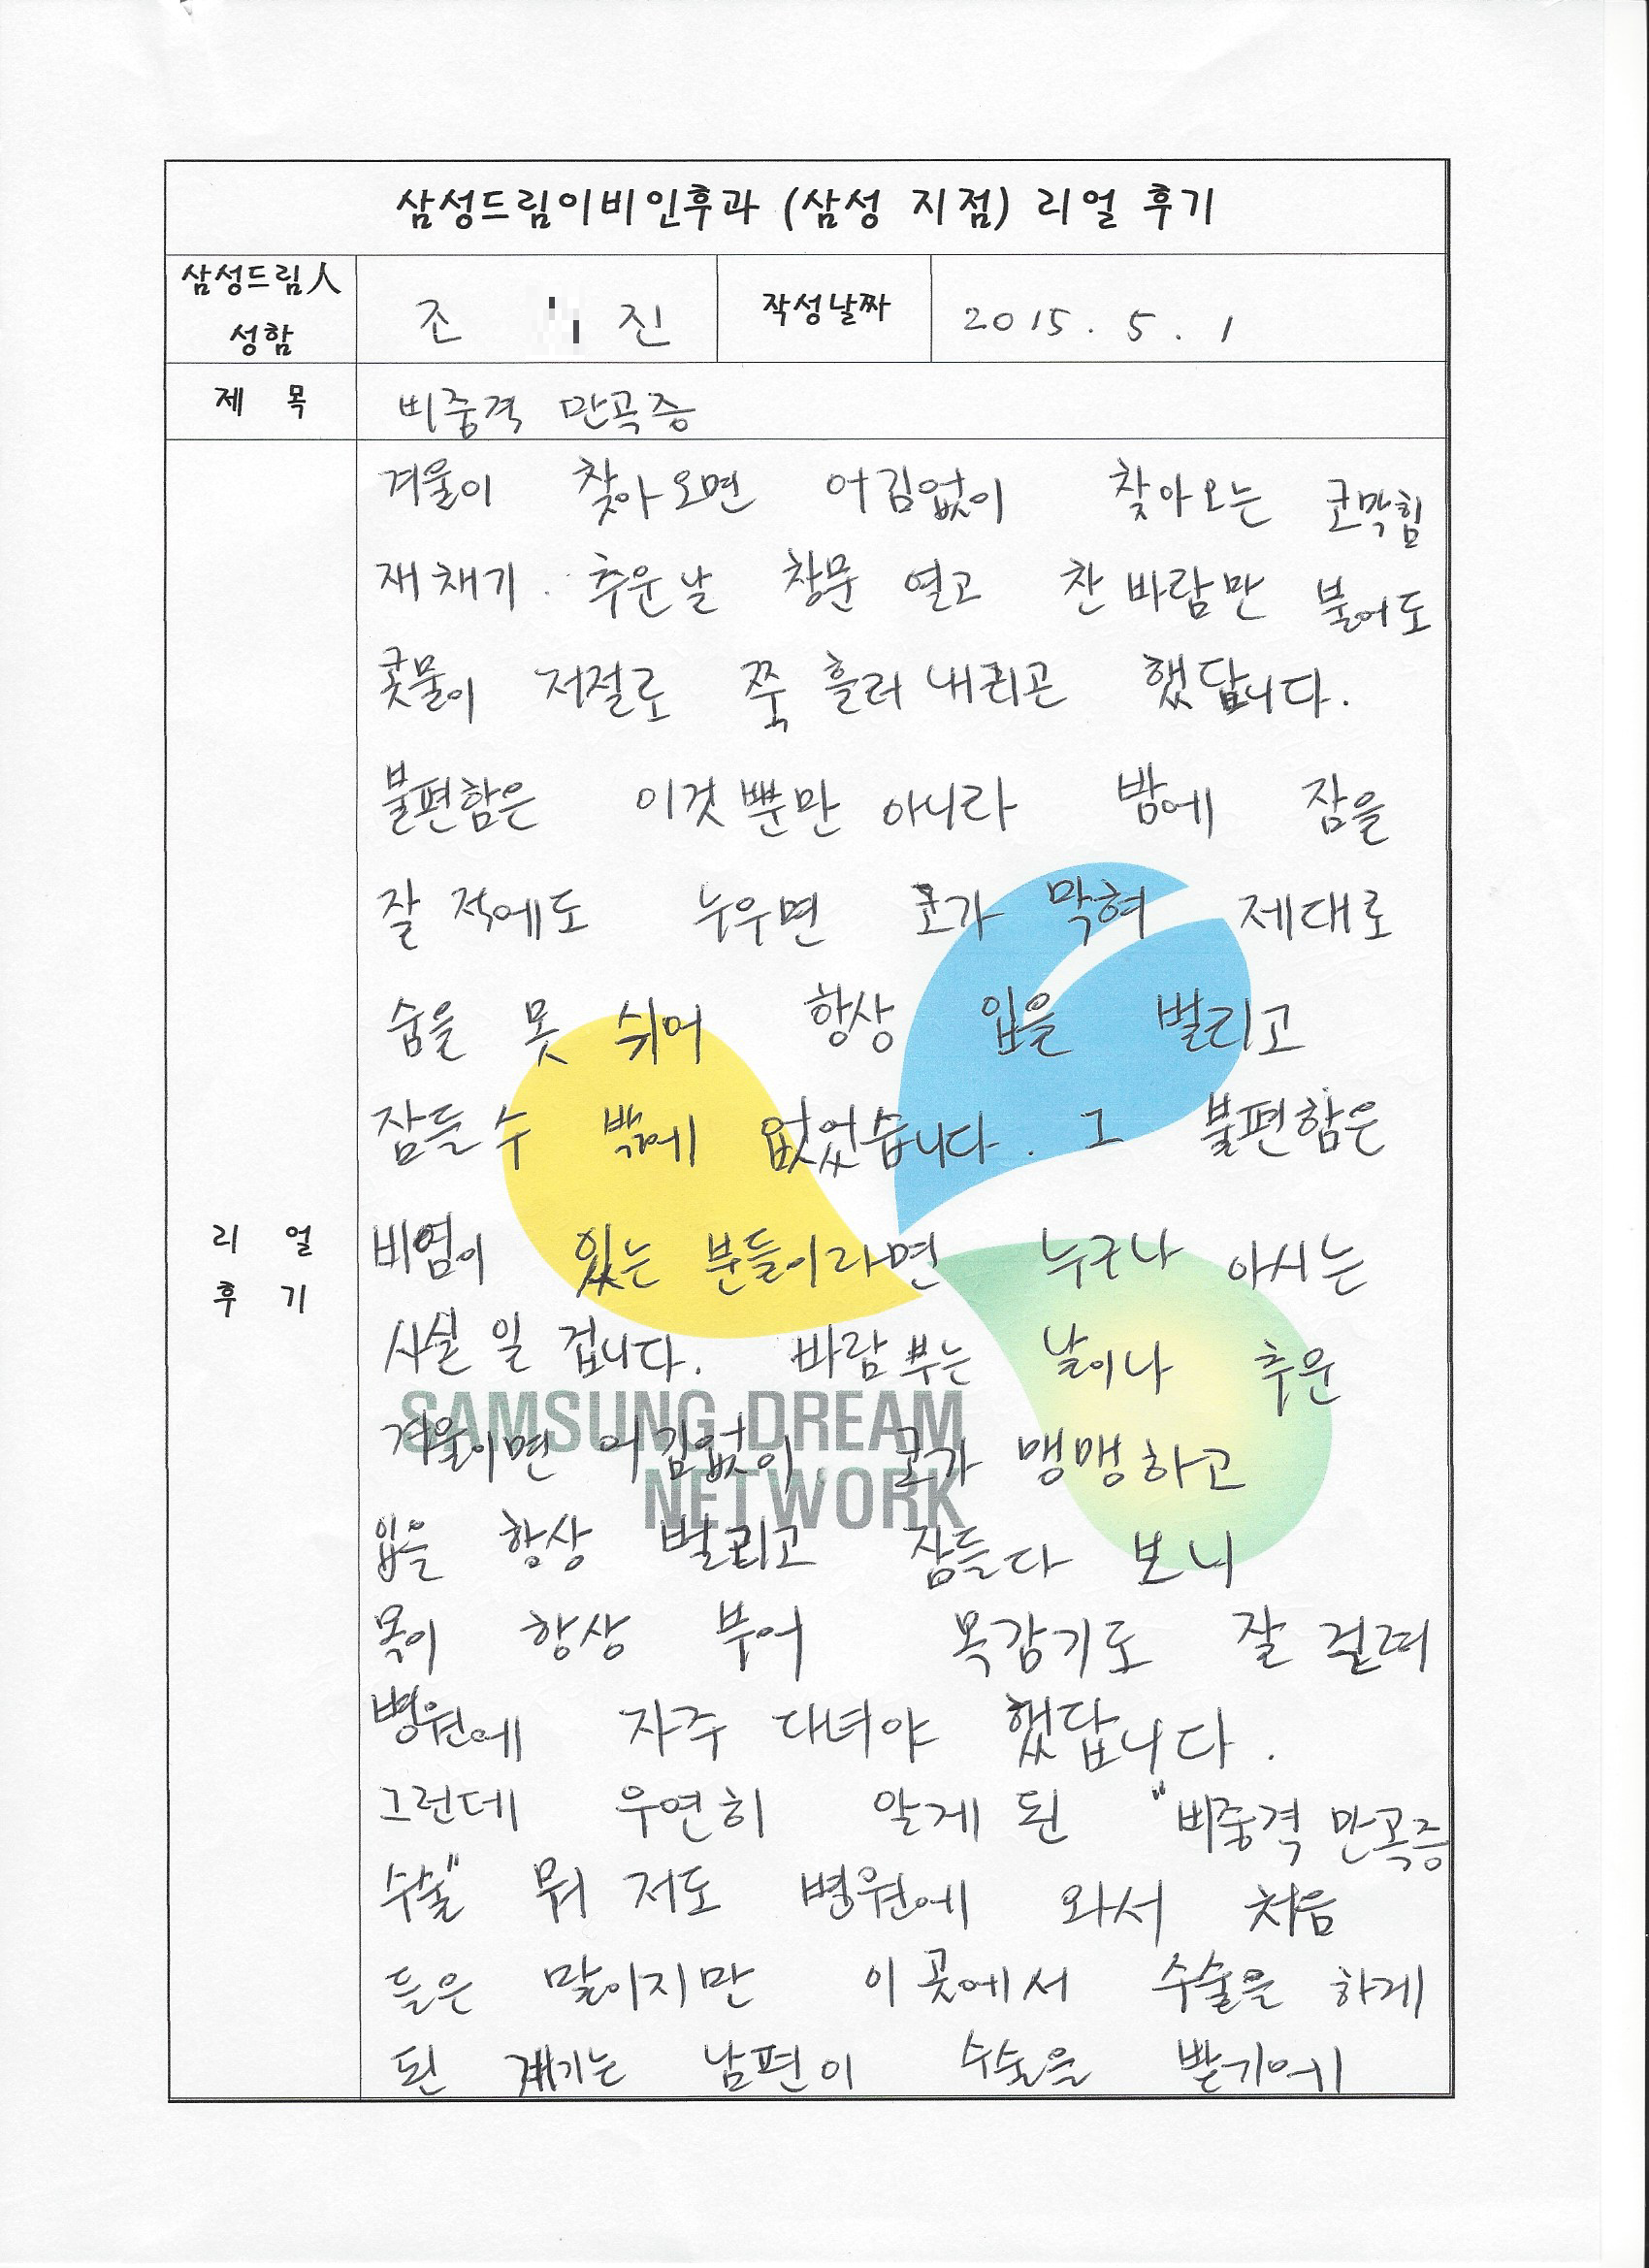 삼성드림이비인후과 (삼성 지점) 리얼 후기
삼성드림人 성함
조 진
작성날짜
2015. 5. 1
제 목
비중격 만곡증
리 얼
후 기
겨울이 찾아오면 어김없이 찾아오는 코막힘
재채기. 추운날 창문 열고 찬 바람만 불어도
콧물이 저절로 쭉 흘러 내리곤 했답니다.
불편함은 이것 뿐만 아니라 밤에 잠을
잘 적에도 누우면 코가 막혀 제대로
숨을 못 쉬어 항상 입을 벌리고
잠들 수 밖에 없었습니다. 그 불편함은
비염이 있는 분들이라면 누구나 아시는
사실 일 겁니다. 바람 부는 날이나 추운
겨울이면 어김없이 코가 맹맹하고
입을 항상 벌리고 잠들다 보니
목이 항상 부어 목감기도 잘 걸려
병원에 자주 다녀야 했답니다.
그런데 우연히 알게 된 "비중격 만곡증
수술" 뭐 저도 병원에 와서 처음
들은 말이지만 이 곳에서 수술을 하게
된 계기는 남편이 수술을 받기에
SAMSUNG DREAM
NETWORK